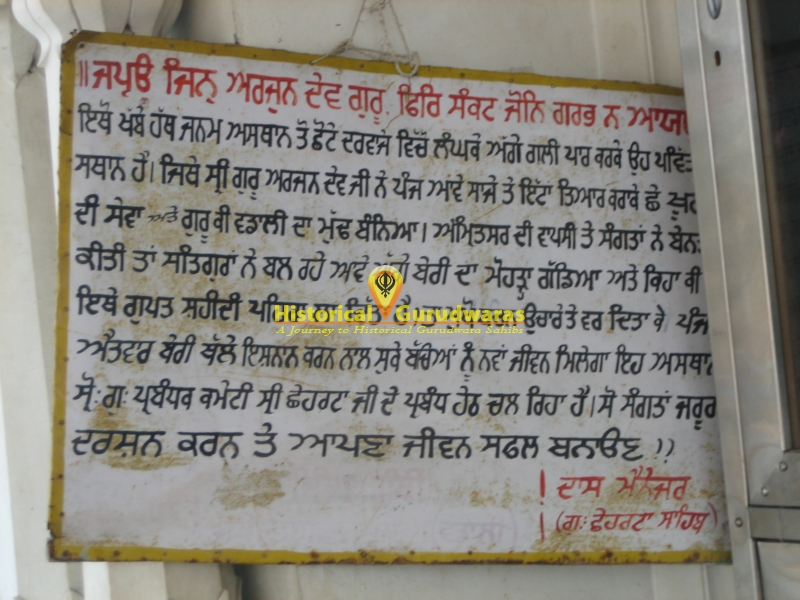 ॥ਜਪ੍ਯਉ ਜਿਨ੍ਹ ਅਰਜੁਨ ਦੇਵ ਗੁਰੂ ਫਿਰਿ ਸੰਕਟ ਜੋਨਿ ਗਰਭ ਨ ਆਯਉ
ਇਥੋ ਖੱਬੇ ਹੱਥ ਜਨਮ ਅਸਥਾਨ ਤੋ ਛੋਟੇ ਦਰਵਾਜੇ ਵਿੱਚੋ ਲੰਘਕੇ ਅੱਗੇ ਗਲੀ ਪਾਰ ਕਰਕੇ ਉਹ ਪਵਿੱਤ
ਸਥਾਨ ਹੈ। ਜਿਥੇ ਸ੍ਰੀ ਗੁਰੂ ਅਰਜਨ ਦੇਵ ਜੀ ਨੇ ਪੰਜ ਆਵੇ ਸਾਜੇ ਤੇ ਇੱਟਾਂ ਤਿਆਰ ਕਰਾਕੇ ਛੇ ਖੂਹ
ਦੀ ਸੇਵਾ ਅਤੇ ਗੁਰੂ ਕੀ ਵਡਾਲੀ ਦਾ ਮੁੱਢ ਬੰਨਿਆ। ਅੰਮ੍ਰਿਤਸਰ ਦੀ ਵਾਪਸੀ ਤੇ ਸੰਗਤਾਂ ਨੇ ਬੇਨ
ਕੀਤੀ ਤਾਂ ਸਤਿਗੁਰਾਂ ਨੇ ਬਲ ਰਹੇ ਆਵੇ ਬੇਰੀ ਦਾ ਮੋਹਤ੍ਰਾ ਗੱਡਿਆ ਅਤੇ ਕਿਹਾ ਕੀ
ਇਥੇ ਗੁਪਤ ਸ਼ਹੀਦੀ ਉਚਾਰੇ ਤੇ ਵਰ ਦਿਤਾ ਕੇ ਪੰਜ
Historical Gurudwaras
A Journey to Historical Gurudwara Sahibs
ਐਤਵਾਰ ਬੇਰੀ ਥੱਲੇ ਇਸ਼ਨਾਨ ਕਰਨ ਨਾਲ ਸੁਕੇ ਬੱਚਿਆਂ ਨੂੰ ਨਵਾਂ ਜੀਵਨ ਮਿਲੇਗਾ ਇਹ ਅਸਥਾਨ
ਸ਼੍ਰੋ: ਗੁ: ਪ੍ਰਬੰਧਕ ਕਮੇਟੀ ਸ੍ਰੀ ਛੇਹਰਟਾ ਜੀ ਦੇ ਪ੍ਰਬੰਧ ਹੇਠ ਚਲ ਰਿਹਾ ਹੈ। ਸੋ ਸੰਗਤਾਂ ਜਰੂਰ
ਦਰਸ਼ਨ ਕਰਨ ਤੇ ਆਪਣਾ ਜੀਵਨ ਸਫਲ ਬਨਾਉਣ ))
! ਦਾਸ ਮੈਨੇਜਰ
! (ਗੁ: ਛੇਹਰਟਾ ਸਾਹਿਬ)